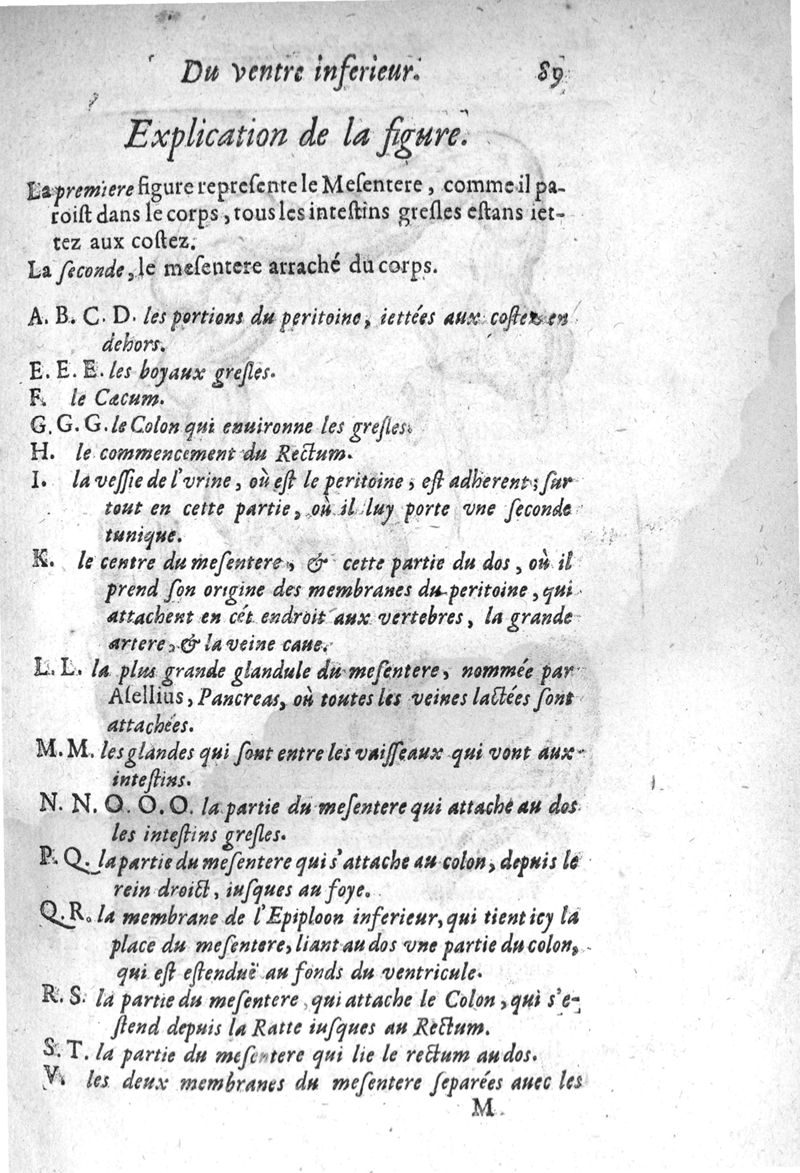 Du ventre inferieur. 89
Explication de la figure.
La premiere figure represente le Mesentere, comme il pa-
roist dans le corps, tous les intestins gresles estans iet-
tez aux costez.
La seconde, le mesentere arraché du corps.
A. B. C. D. les portions du peritoine, iettées aux costez en
dehors.
E. E. E. les boyaux gresles.
F. le Cæcum.
G. G. G. le Colon qui enuironne les gresles.
H. le commencement du Rectum.
I. la vessie de l'vrine, où est le peritoine, est adherent; sur
tout en cette partie, où il luy porte vne seconde
tunique.
K. le centre du mesentere, & cette partie du dos, où il
prend son origine des membranes du peritoine, qui
attachent en cét endroit aux vertebres, la grande
artere, & la veine caue.
L. L. la plus grande glandule du mesentere, nommée par
Asellius, Pancreas, où toutes les veines lactées sont
attachées.
M. M. les glandes qui sont entre les vaisseaux qui vont aux
intestins.
N. N. O. O. O. la partie du mesentere qui attache au dos
les intestins gresles.
P. Q. la partie du mesentere qui s'attache au colon, depuis le
rein droict, iusques au foye.
Q. R. la membrane de l'Epiploon inferieur, qui tient icy la
place du mesentere, liant au dos vne partie du colon,
qui est estenduë au fonds du ventricule.
R. S. la partie du mesentere, qui attache le Colon, qui s'e-
stend depuis la Ratte iusques au Rectum.
S. T. la partie du mesentere qui lie le rectum au dos.
V. les deux membranes du mesentere separées auec les
M